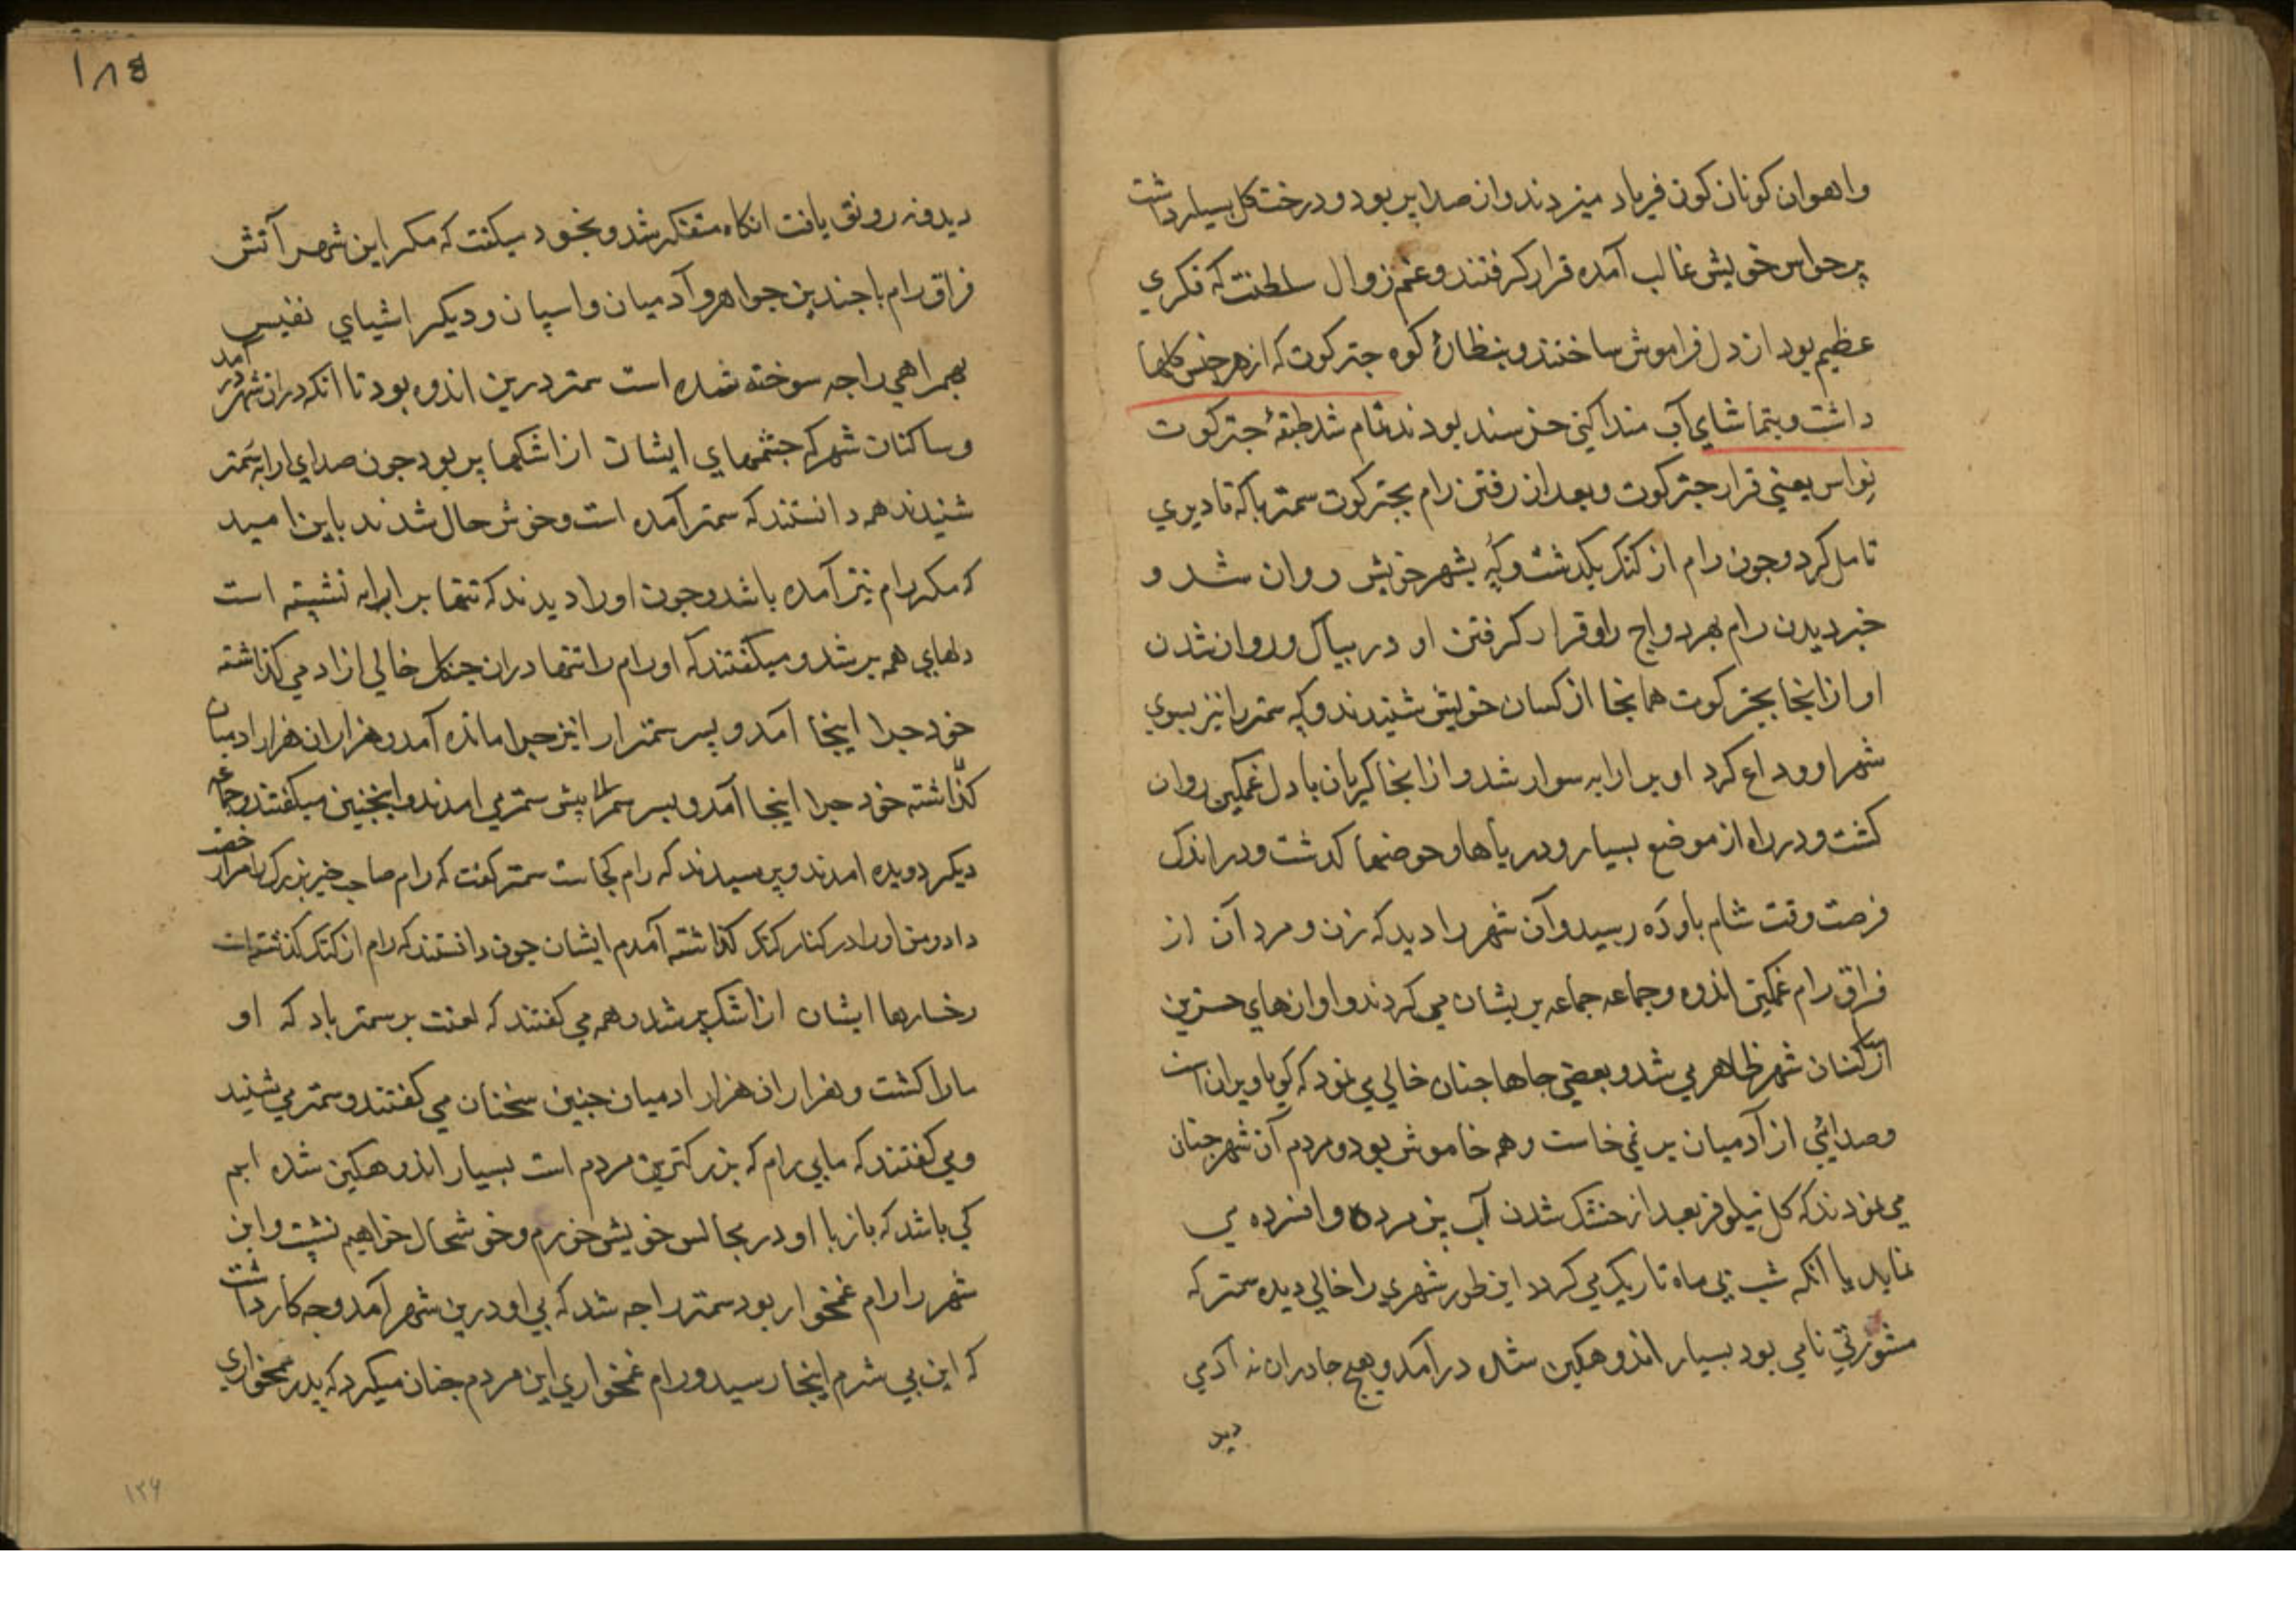 واهوان کونان کون فریاد میزدند وازن صدا پر بود و درخت کل بسیار داشت
بر حواس خویش غالب آمده قرار کرفتند و غم زوال سلطنت که فکری
عظیم بود از دل فراموش ساختند و بنظارۀ کوه جترکوت که از هر جنس کلها
داشت و بتماشای آب منداکنی خرسند بودند تمام شد طبقۀ جترکوت
نواس یعنی قرار جترکوت و بعد از رفتن رام بجترکوت سمتر باکه تا دیری
تامل کرد و جون رام از کنک بکدشت وکُه بشهر خویش روان شد و
خبر دیدن رام بهردواج را و قرار کرفتن او در بیاک و روان شدن
او از انجا بجترکوت همانجا از کسان خویش شنیدند وکه سمتر را نیز بسوی
شهر او وداع کرد او بر ارابه سوار شد و از انجا کریان با دل غمکین روان
کشت و در راه از موضع بسیار و دریاها و حوضها کدشت و در اندک
فرصت وقت شام باودَه رسید و آن شهر را دید که زن و مرد آن از
فراق رام غمکین اندوه و جماعه جماعه پریشان می کردند و اوازهای حزین
از ساکنان شهر ظاهر می شد و بعضی جاها جنان خالی می نمود که کویا ویران است
و صدائی از آدمیان بر نمی خاست و همه خاموش بود و مردم آن شهر جنان
می نمودند که کل نیلوفر بعد از خشک شدن آب پژمرده و افسرده می
نماید یا انکه شب بی ماه تاریک می کردد این طور شهری را خالی دیده سمتر که
مشورتی نامی بود بسیار اندوهکین شده درآمد و هیج جا دران نه آدمی
دید
۱۸۵
دید و نه رونق یافت انکاه متفکر شد و بخود میکفت که مکر این شهر آتش
فراق رام با جندین جواهر و آدمیان و اسپان و دیکر اشیای نفیس
بهمراهی راجه سوخته شده است سمتر درین اندوه بود تا انکه دران شهر در آمد
و ساکنان شهر که جشمهای ایشان از اشکها پر بود جون صدای ارابه سَمتر
شنیدند همه دانستند که سمتر آمده است و خوش حال شدند باین امید
که مکر رام نیز آمده باشد و جون او را دیدند که تنها بر ارابه نشسته است
دلهای همه پر شد و میکفتند که او رام را تنها دران جنکل خالی از ادمی کذاشته
خود جرا اینجا آمد و پسر سمترا را نیز جرا مانده آمد و هزاران هزار ادمیان
کذاشته خود جرا اینجا آمد و پسر سمترا پیش سمتر می امدند و اینجنین میکفتند و جماعه
دیکر دویده امدند و پرسیدند که رام کجاست سمتر کفت که رام صاحب خیر بزرک مرا رخصت
داد و من او را در کنار کنک کذاشته آمدم ایشان جون دانستند که رام از کنک کذشته است
رخسارها ایشان از اشک پر شد و همه می کفتند که لعنت بر سمتر باد که او
ما را کشت و هزاران هزار ادمیان جنین سخنان می کفتند و سمتر می شنید
و می کفتند که ما بی رام که بزرکترین مردم است بسیار اندوهکین شده ایم
کی باشد که باز با او در مجالس خویش خورم و خوشحال خواهیم نشست و این
شهر را رام غمخوار بود سمتر را جه شد که بی او درین شهر آمد و جه کار داشت
که این بی شرم اینجا رسید و رام غمخواری این مردم جنان میکرد که پدر غمخواری
۱۳۶